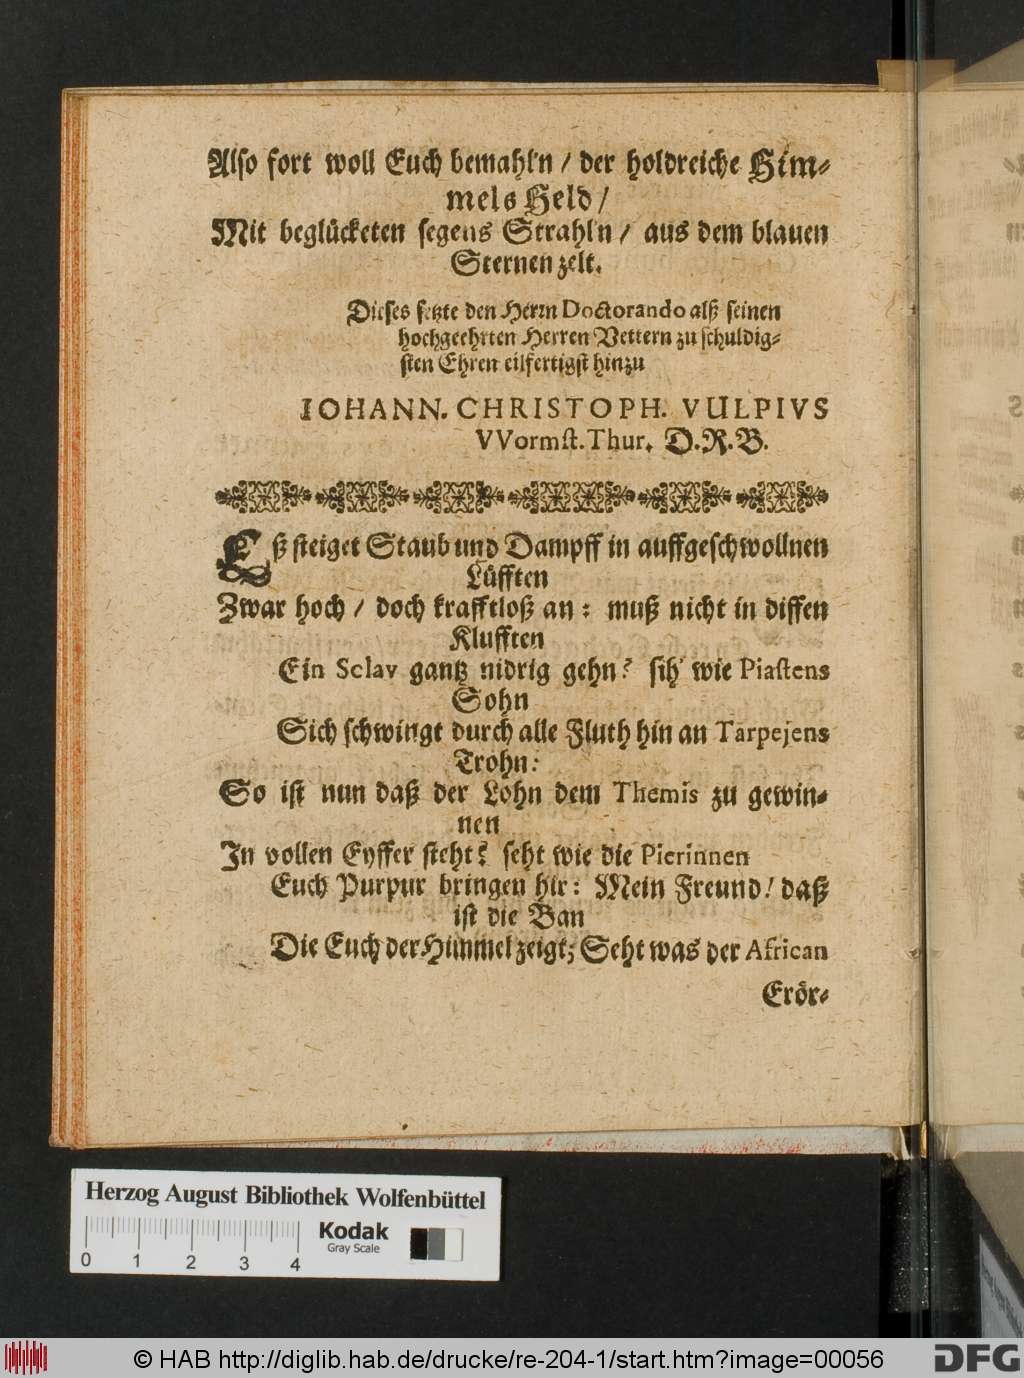 Also fort woll Euch bemahl'n / der holdreiche Him-
mels Held /
Mit beglücketen segens Strahl'n / aus dem blauen
Sternen zelt.
Dieses setzte den Herrn Doctorando alß seinen
hochgeehrten Herren Vettern zu schuldig-
sten Ehren eilfertigst hinzu
IOHANN. CHRISTOPH. VULPIVS
VVormst. Thur. D.R.B.
Eß steiget Staub und Dampff in auffgeschwollnen
Lüfften
Zwar hoch / doch krafftloß an: muß nicht in diffen
Klufften
Ein Sclav gantz nidrig gehn? sih' wie Piastens
Sohn
Sich schwingt durch alle Fluth hin an Tarpejens
Trohn:
So ist nun daß der Lohn dem Themis zu gewin-
nen
In vollen Eyffer steht? seht wie die Pierinnen
Euch Purpur bringen hir: Mein Freund! daß
ist die Ban
Die Euch der Himmel zeigt; Seht was der African
Erör-
Herzog August Bibliothek Wolfenbüttel
Kodak
Gray Scale
0 1 2 3 4
© HAB http://diglib.hab.de/drucke/re-204-1/start.htm?image=00056
DFG